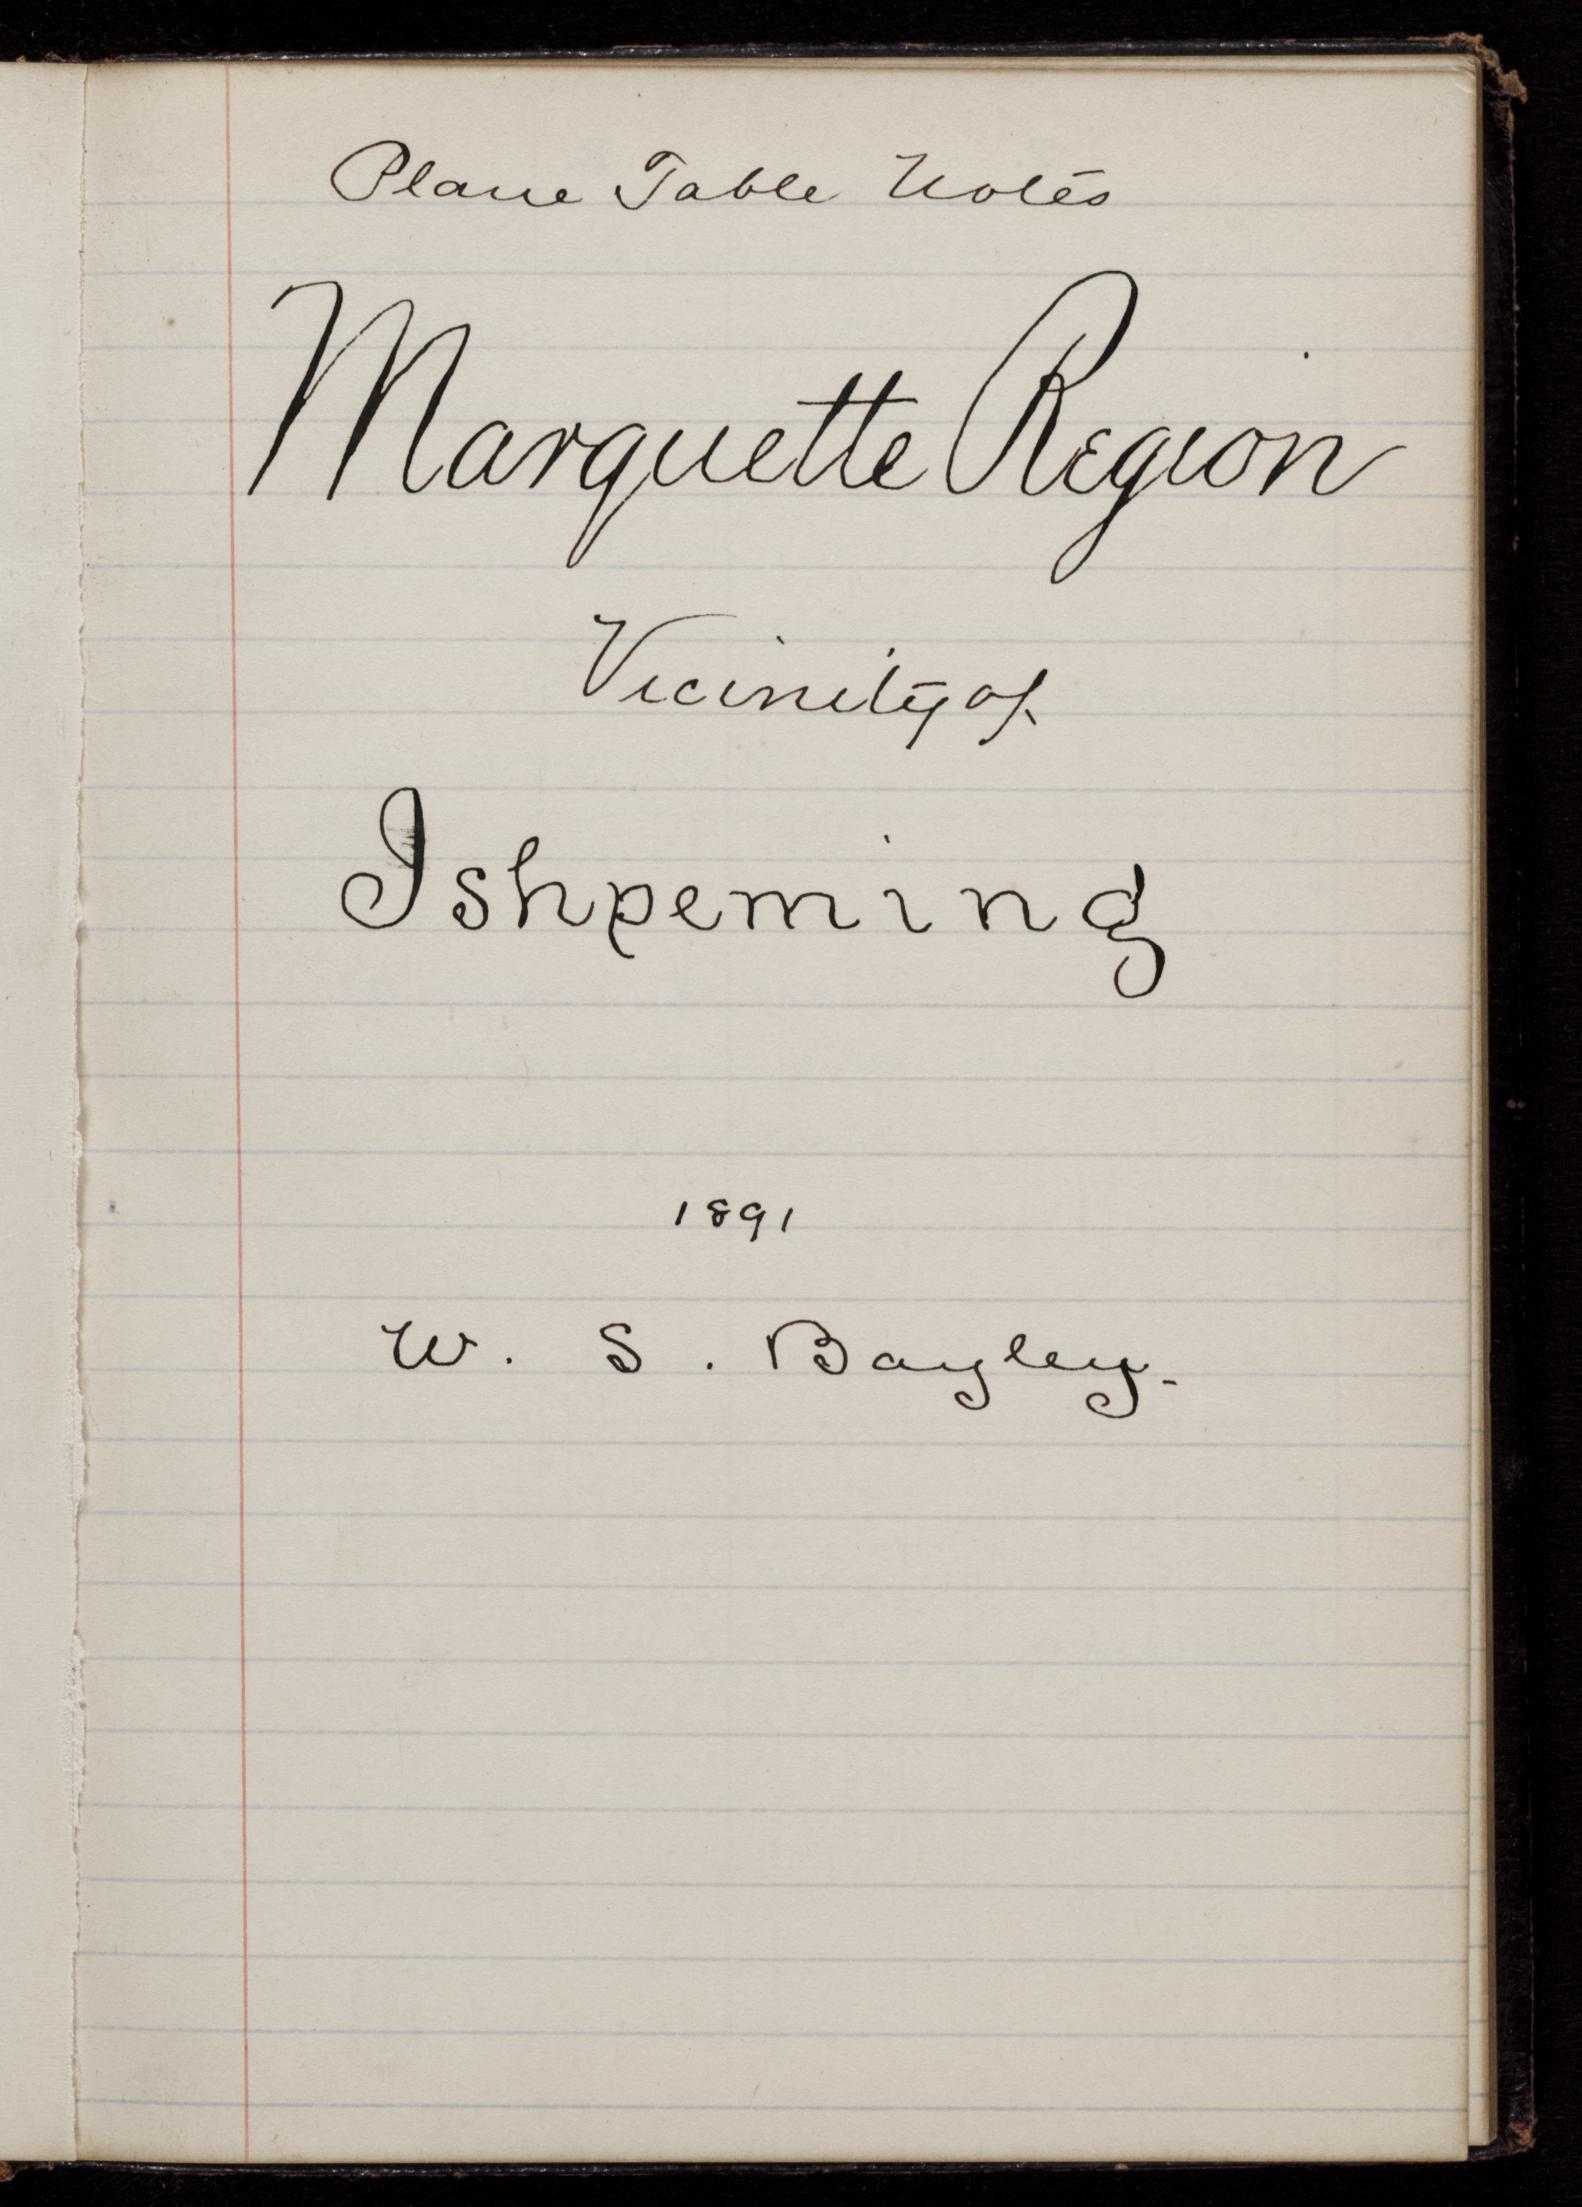 Plane Table Notes
Marquette Region
Vicinity of
Ishpeming
1891
W. S. Bayley.